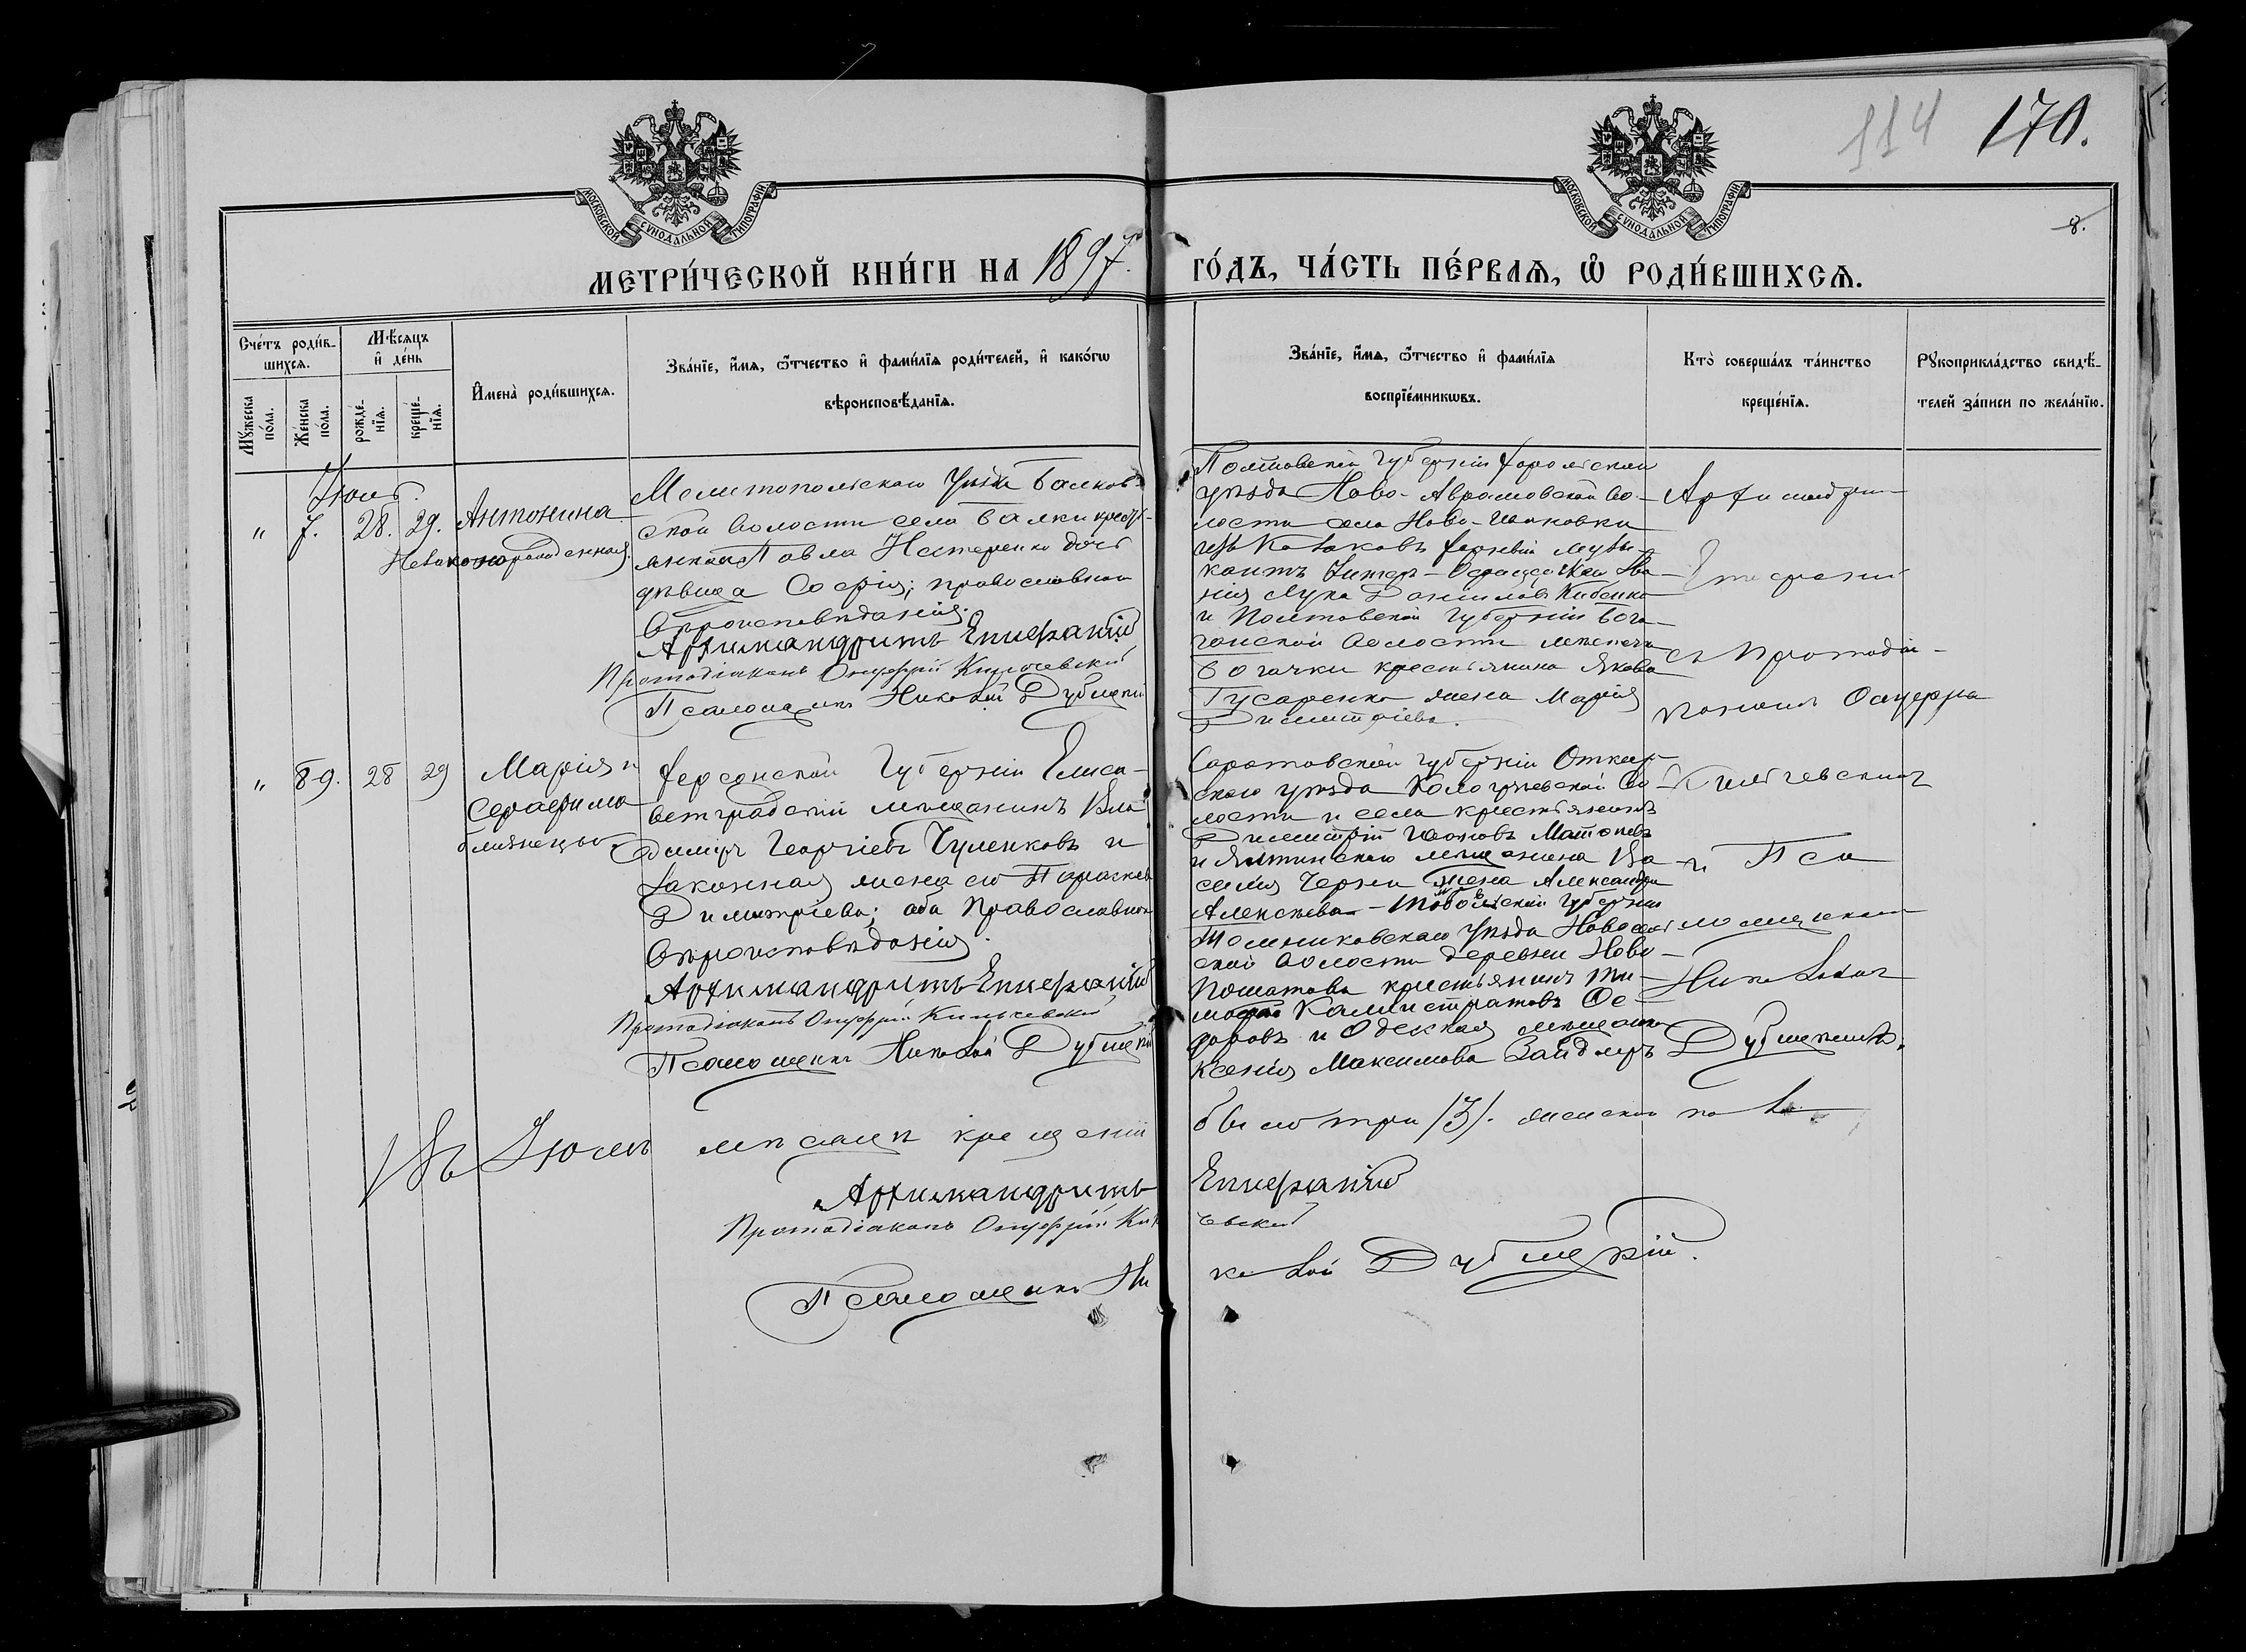 114 170.
МОСКОВСКОЙ СУНОДАЛЬНОЙ ТИПОГРАФІИ
МОСКОВСКОЙ СУНОДАЛЬНОЙ ТИПОГРАФІИ
8.
МЕТРИ́ЧЕСКОЙ КНИ́ГИ НА 1897.
ГО́ДЪ, ЧА́СТЬ ПЕ́РВАѦ, Ѡ҆ РОДИ́ВШИХСѦ.
Сче́тъ роди́в-
шихсѧ.
Му́жеска
по́ла.
Же́нска
по́ла.
Мѣ́сѧцъ
и҆ де́нь
рожде́-
нїѧ.
креще́-
нїѧ.
И҆мена̀ роди́вшихсѧ.
Зва́нїе, и҆́мѧ, ѻ҆́тчество и҆ фами́лїѧ роди́телей, и҆ како́гѡ
вѣроисповѣ́данїѧ.
Зва́нїе, и҆́мѧ, ѻ҆́тчество и҆ фами́лїѧ
воспрїе́мникѡвъ.
Кто̀ соверша́лъ та́инство
креще́нїѧ.
Рꙋкоприкла́дство свидѣ́-
телей за́писи по жела́нїю.
Іюль.
" 7. 28. 29. Антонина
Незаконорожденная
Мелитопольскаго Уѣзда Балков-
ской волости села Балки кресть-
янина Павла Нестеренко дочь
дѣвица Софія; православнаго
вѣроисповѣданія.
Архимандритъ Епифаній
Протодіаконъ Онуфрій Кильчевскій
Псаломщикъ Николай Дубицкій
Полтавской Губерніи Хорольскаго
уѣзда Ново-Аврамовской во-
лости села Ново-Ивановки
изъ казаковъ Лука Даниловъ Кибенко
и Полтавской Губерніи Бога-
чанской волости мѣстечка
Богачки крестьянина Якова
Гусаренко жена Марія
Димитріева.
Архимандри-
тъ Епифаній
съ Протодіа-
кономъ Онуфріемъ
" 8-9. 28 29 Марія и
Серафима
близнецы
Херсонской Губерніи Елиса-
ветградскій мѣщанинъ Вла-
димиръ Георгіевъ Чуленковъ и
законная жена его Параскева
Димитріева; оба православнаго
вѣроисповѣданія.
Архимандритъ Епифаній
Протодіаконъ Онуфрій Кильчевскій
Псаломщикъ Николай Дубицкій
Саратовской губерніи Аткар-
скаго уѣзда во-
лости и села крестьянинъ
Димитрій Ивановъ
и Ялтинскаго мѣщанина Ва-
силія Черни жена Александра
Алексѣева - Тобольской Губерніи
уѣзда
ской волости деревни Ново-
крестьянинъ Ти-
мофей Калистратовъ Ѳе-
доровъ и Одесская мѣщанка
Ксенія Максимова Зайдлеръ
Кильчевскимъ
и Пса-
ломщикомъ
Николаемъ
Дубицкимъ.
Въ Іюлѣ мѣсяцѣ крещеній было три /3/. женскаго пола
Архимандритъ Епифаній
Протодіаконъ Онуфрій Кильчевскій
Псаломщикъ Николай Дубицкій.